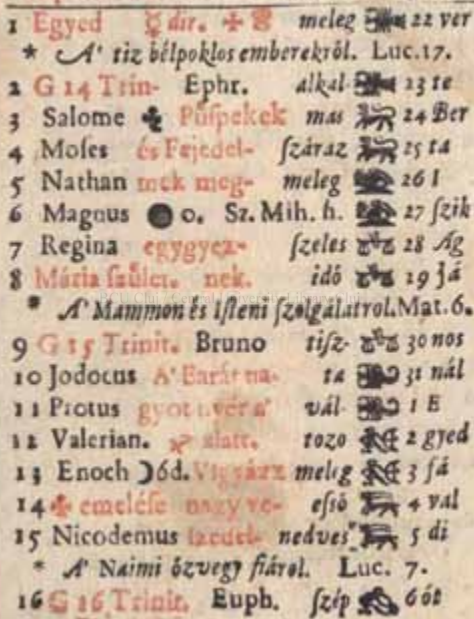 1 Egyed ☿ dir. meleg 22 ver
* A' tiz bélpoklos emberekről. Luc. 17.
2 G 14 Trin- Ephr. alkal- 23 te
3 Salome ✤ Püspekek mas 24 Ber
4 Moses és Fejedel- ſzáraz 25 ta
5 Nathan mek meg- meleg 26 l
6 Magnus ● o. Sz. Mih. h. 27 ſzik
7 Regina egygyez- ſzeles 28 Ág
8 Mária ſzület. nek. idó 29 já
* A' Mammon és Iſteni ſzolgálatrol. Mat. 6.
9 G 15 Trinit. Bruno tiſz- 30 nos
10 Jodocus A' Barát na- ta 31 nál
11 Protus gyot vál- 1 E
12 Valerian. alatt. tozo 2 gyed
13 Enoch ☽ 6d. Vigyázz meleg 3 ſá
14 ✤ emeléſe nagy ve- eſsö 4 val
15 Nicodemus ſzedel- nedves 5 di
* A' Naimi özvegy fiárol. Luc. 7.
16 G 16 Trinit. Euph. ſzép 6 ót